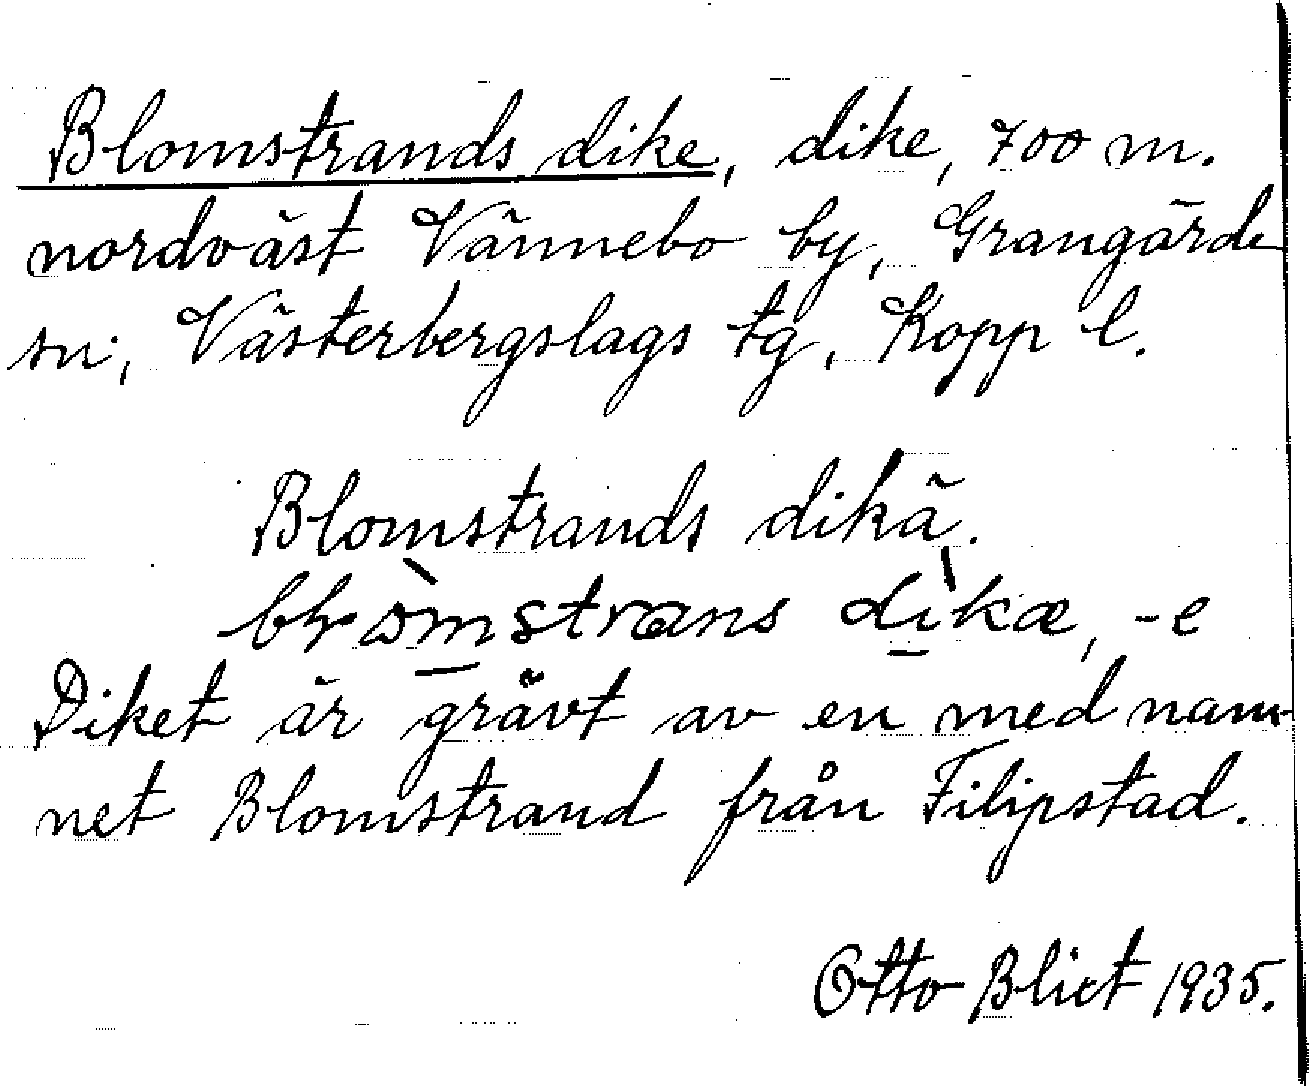 Blomstrands dike, dike, 700 m.
nordväst Vännebo by, Grangärde
sn, Västerbergslags tg, Kopp l.
Blomstrands dikä.
dìkæ, -e
Diket är grävt av en med nam-
net Blomstrand från Filipstad.
Otto Blixt 1935.